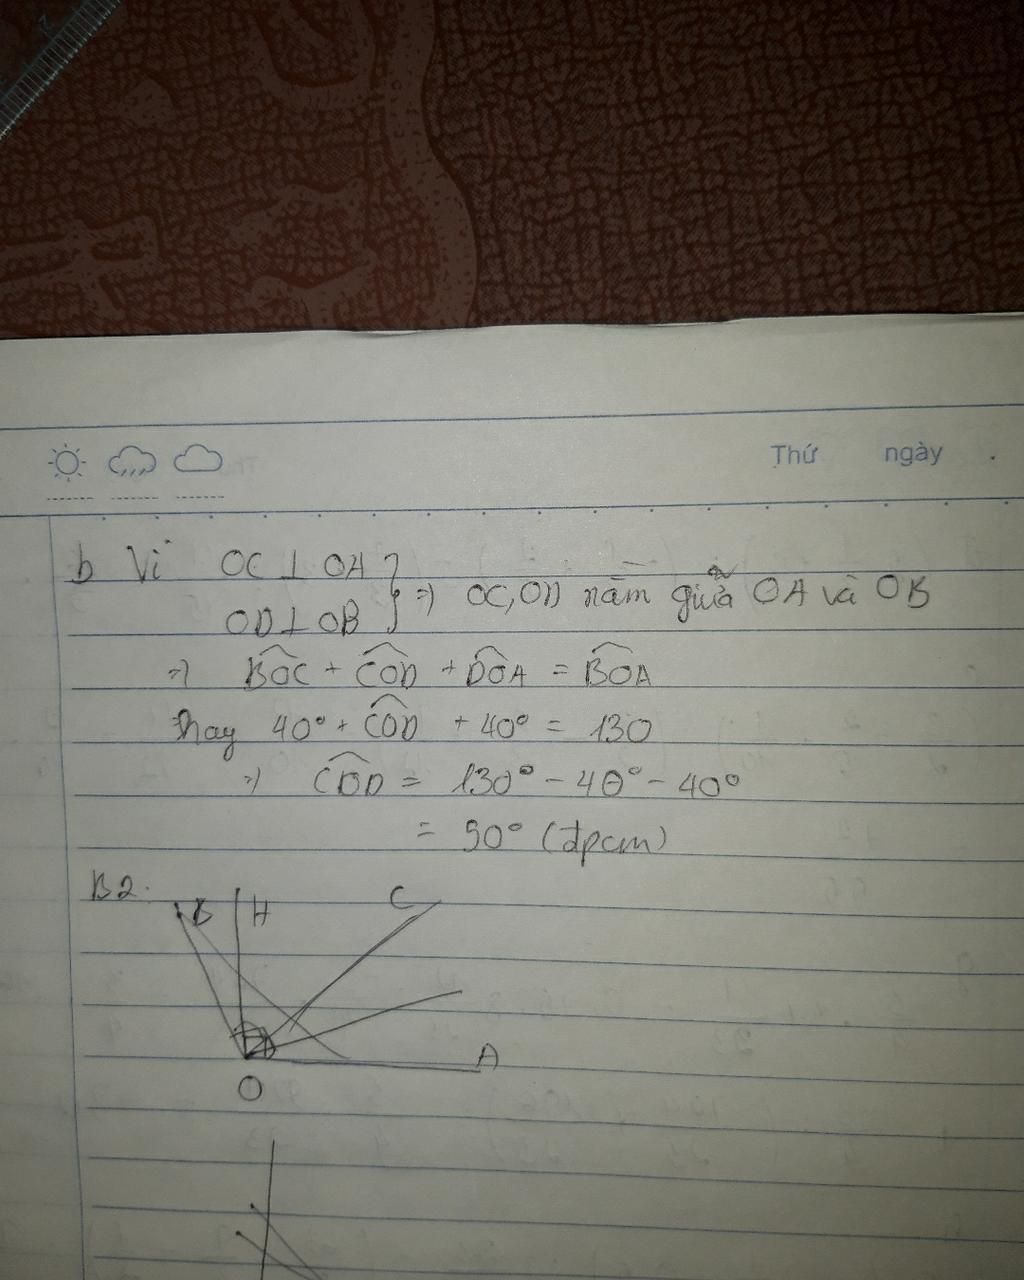 Thứ ngày .
b Vì OC ⊥ OA
OD ⊥ OB } => OC, OD nằm giữa OA và OB
=> BOC + COD + DOA = BOA
Thay 40° + COD + 40° = 130
=> COD = 130° - 40° - 40°
= 50° (đpcm)
B2.
B H C
A
O